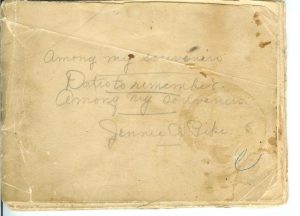 Among my souvenirs
Dates to remember
Among my Souvenirs
Jennie